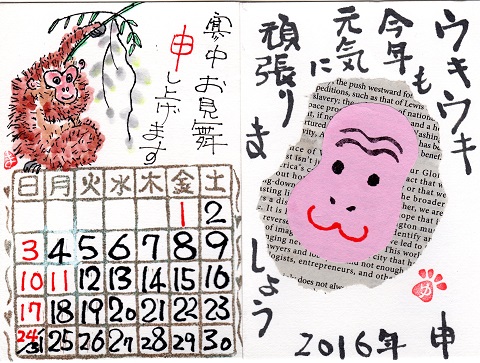 寒中お見舞
申し上げます
日 月 火 水 木 金 土
1 2
3 4 5 6 7 8 9
10 11 12 13 14 15 16
17 18 19 20 21 22 23
24/31 25 26 27 28 29 30
ウキウキ
今年も
元気に
頑張りましょう
the push westward for
such as that of Lewis
slavery; the
logists, entrepreneurs, and other
does not always
2016年 申